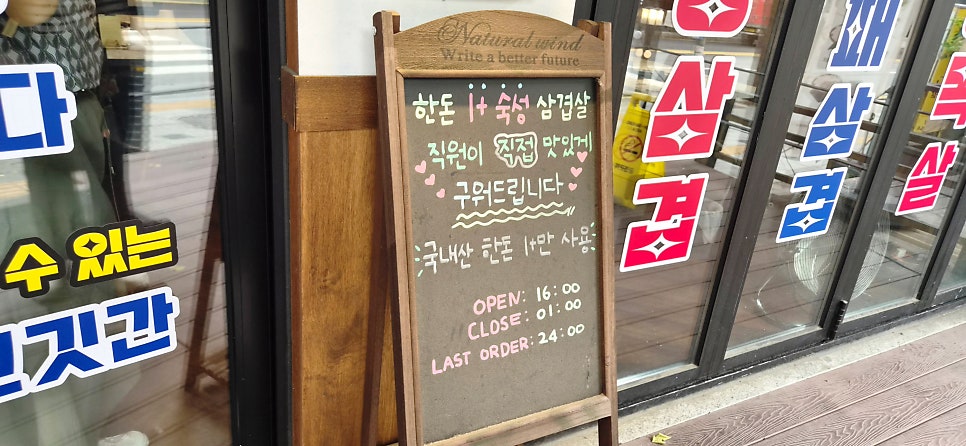 Natural wind
Write a better future
한돈 1+ 숙성 삼겹살
직원이 직접 맛있게
구워드립니다
국내산 한돈 1+만 사용
OPEN: 16:00
CLOSE: 01:00
LAST ORDER: 24:00
다
수 있는
깃간
삼겹
패삼겹
살